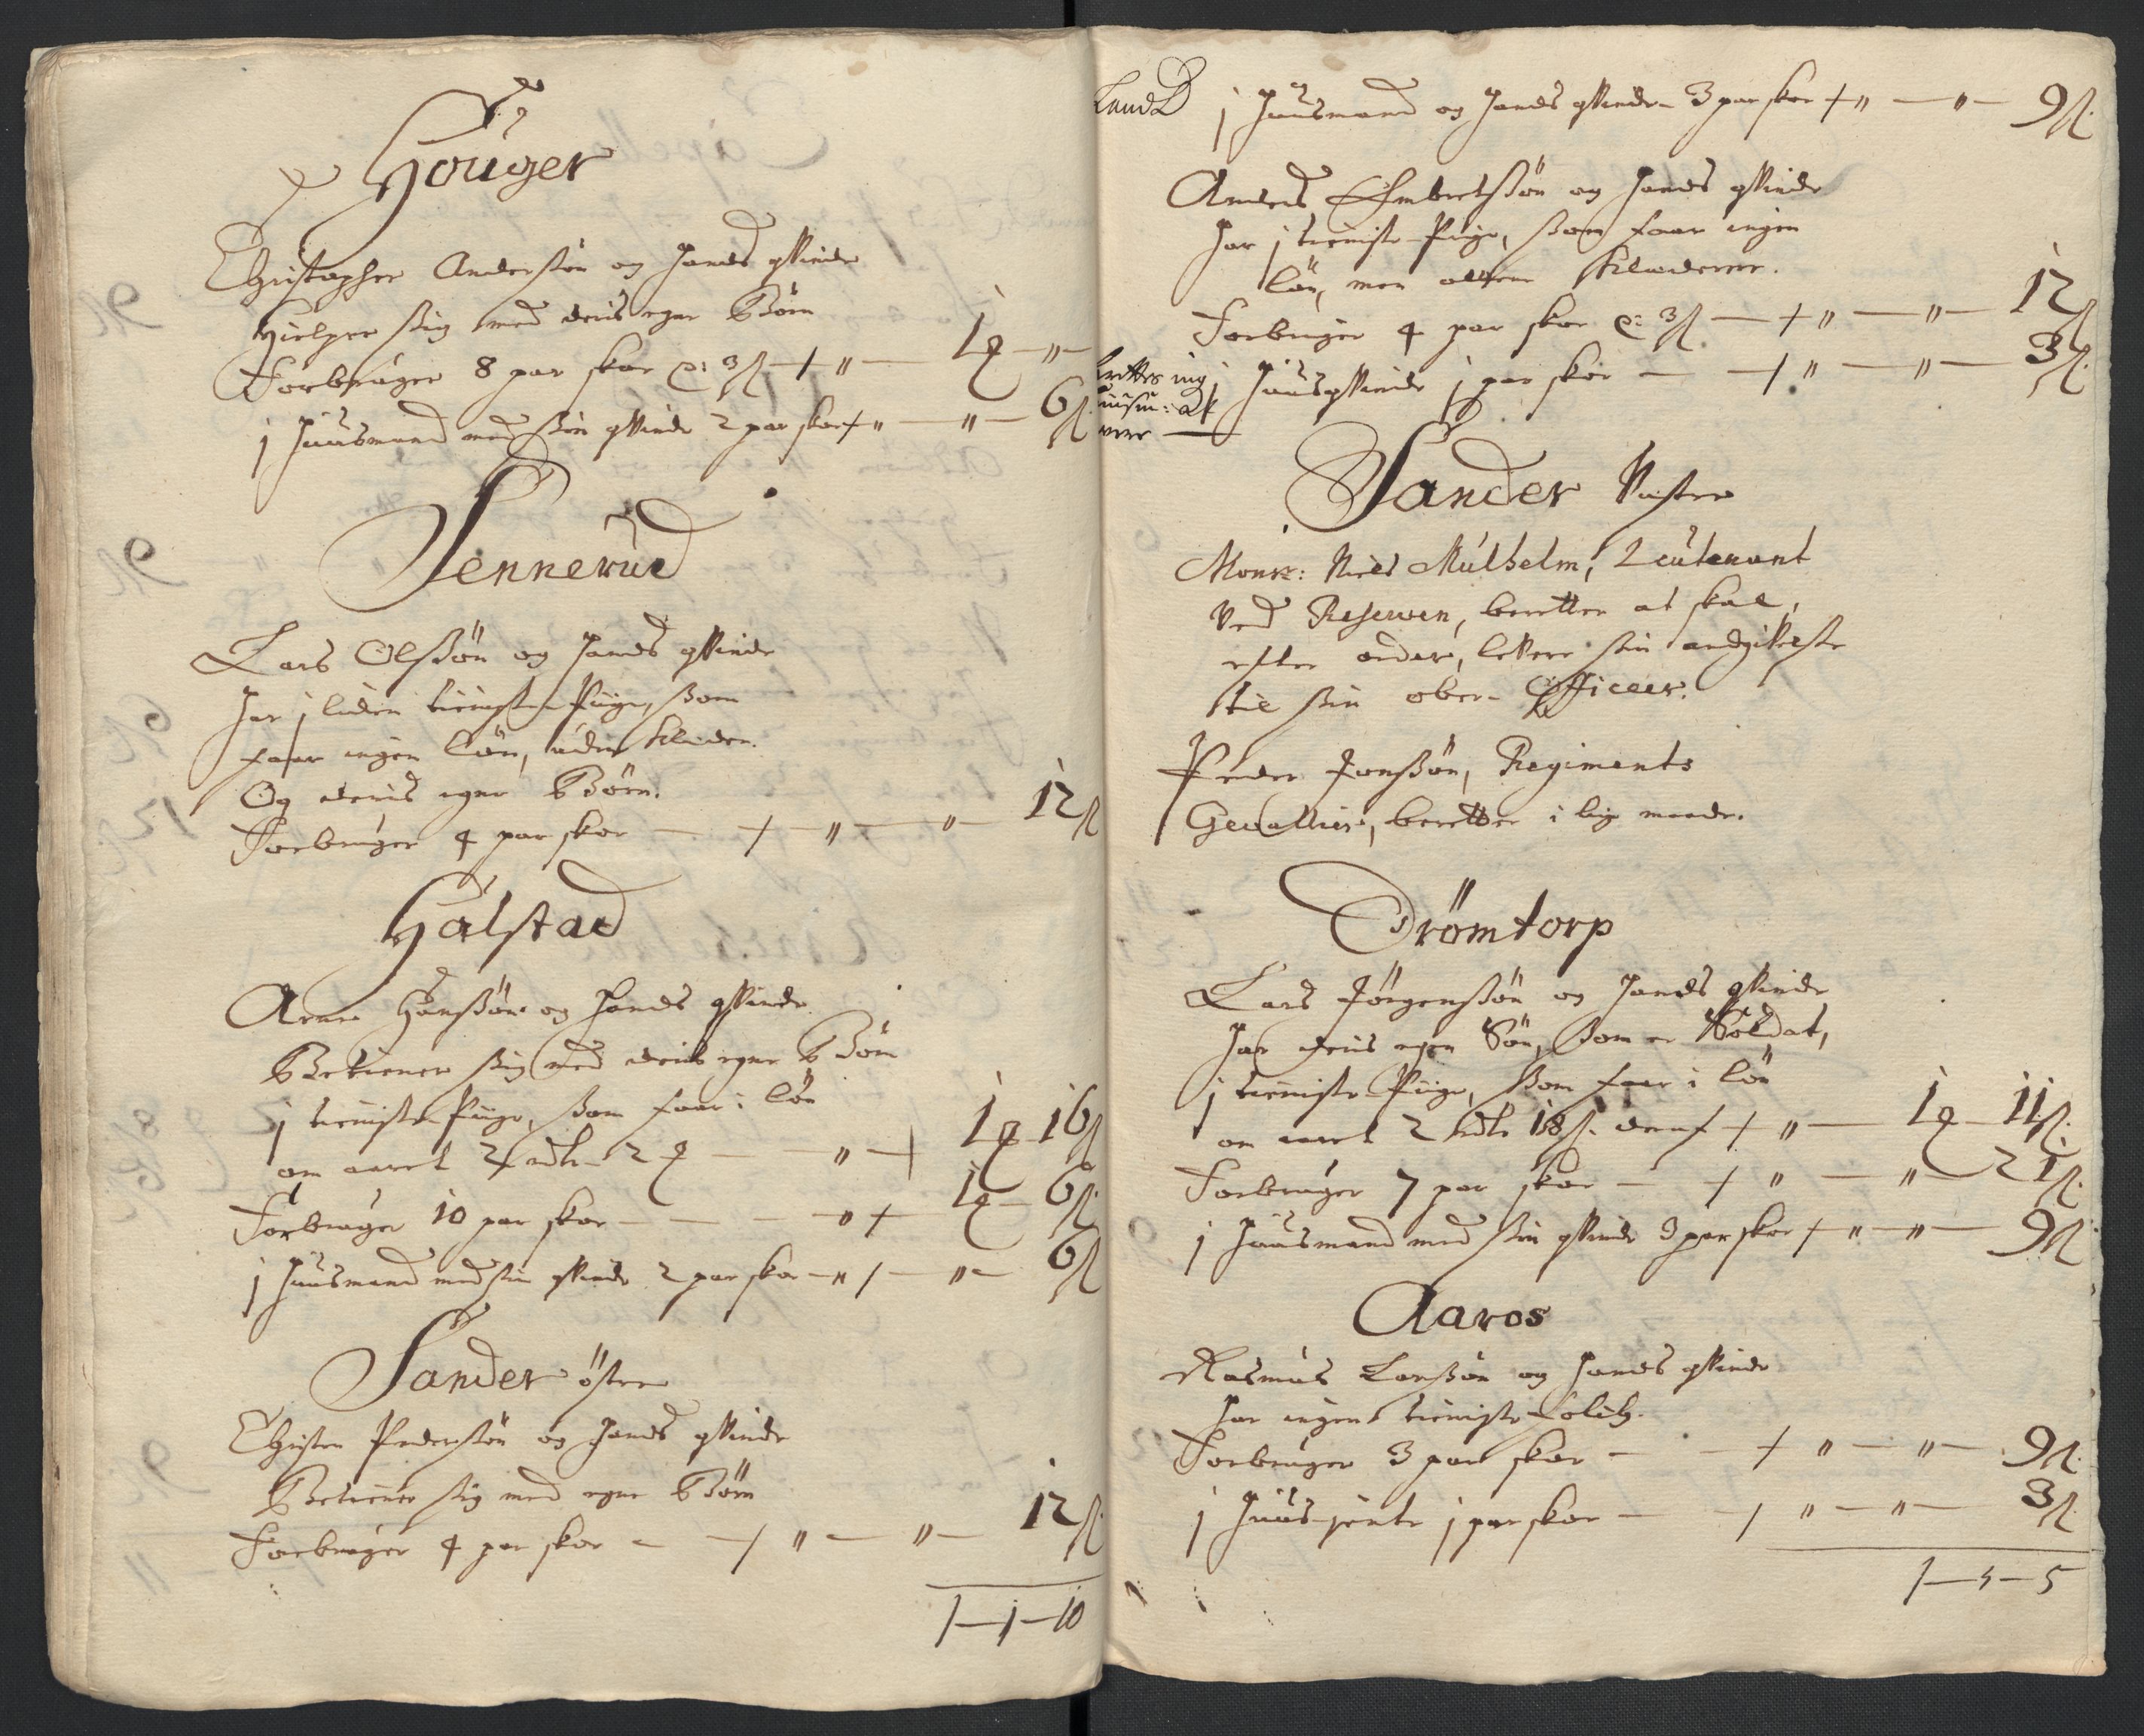 Houger
Christopher Anderssøn og hands qvinde
hielper sig med deris egne Børn
Forbruger 8 par skoe p: 3 s + " — 1 q — " —
j huusmand med sin qvinde 2 par skoe + " — " — 6 s
Sennerud
Lars Olssøn og hands qvinde
har j liden tieniste Piige, som
faar ingen løn, uden klæder.
Og deris egne Børn.
Forbruger 4 par skoe — + " — " — 12 s
Halstad
Arne Hanssøn og hands qvinde
Betiener sig med deris egne Børn
j tieniste Piige, som faar i løn
om aaret 2 rdr 2 q — " + 1 q 16 s
Forbruger 10 par skoe — — — " + 1 q — 6 s
j huusmand med sin qvinde 2 par skoe — " + — " — 6 s
Sander østre
Christen Pederssøn og hands qvinde
Betiener sig med egne Børn
Forbruger 4 par skoe — + " — " — 12 s
1 — 1 — 10
Lund
j huusmand og hands qvinde 3 par skoe + " — " — 9 s.
Anders Embretssøn og hands qvinde
har j tieniste Piige, som faar ingen
løn, men allene klæderne.
Forbruger 4 par skoe p: 3 s — + " — " — 12 s
j huusqvinde j par skoe — + " — " — 3 s.
Sander Vestre
Monsr: Niels Mulhelm, Leutenant
ved Reserven, beretter at skal,
efter order, levere sin angivelse
til sin ober-Officeer.
Peder Jonssøn, Regiments
Gevallier, beretter i lige maade.
Drømtorp
Lars Jørgenssøn og hands qvinde
har deris egen Søn, som er Soldat,
j tieniste Piige, som faar i løn
om aaret 2 rdr 18 s. + " — 1 q — 11 s.
Forbruger 7 par skoe — + " — " — 21 s.
j huusmand med sin qvinde 3 par skoe + " — " — 9 s
Aaros
Rasmus Larssøn og hands qvinde
har ingen tieniste folch.
Forbruger 3 par skoe — + " — " — 9 s.
j huus-jente j par skoe — + " — " — 3 s.
1 — 5